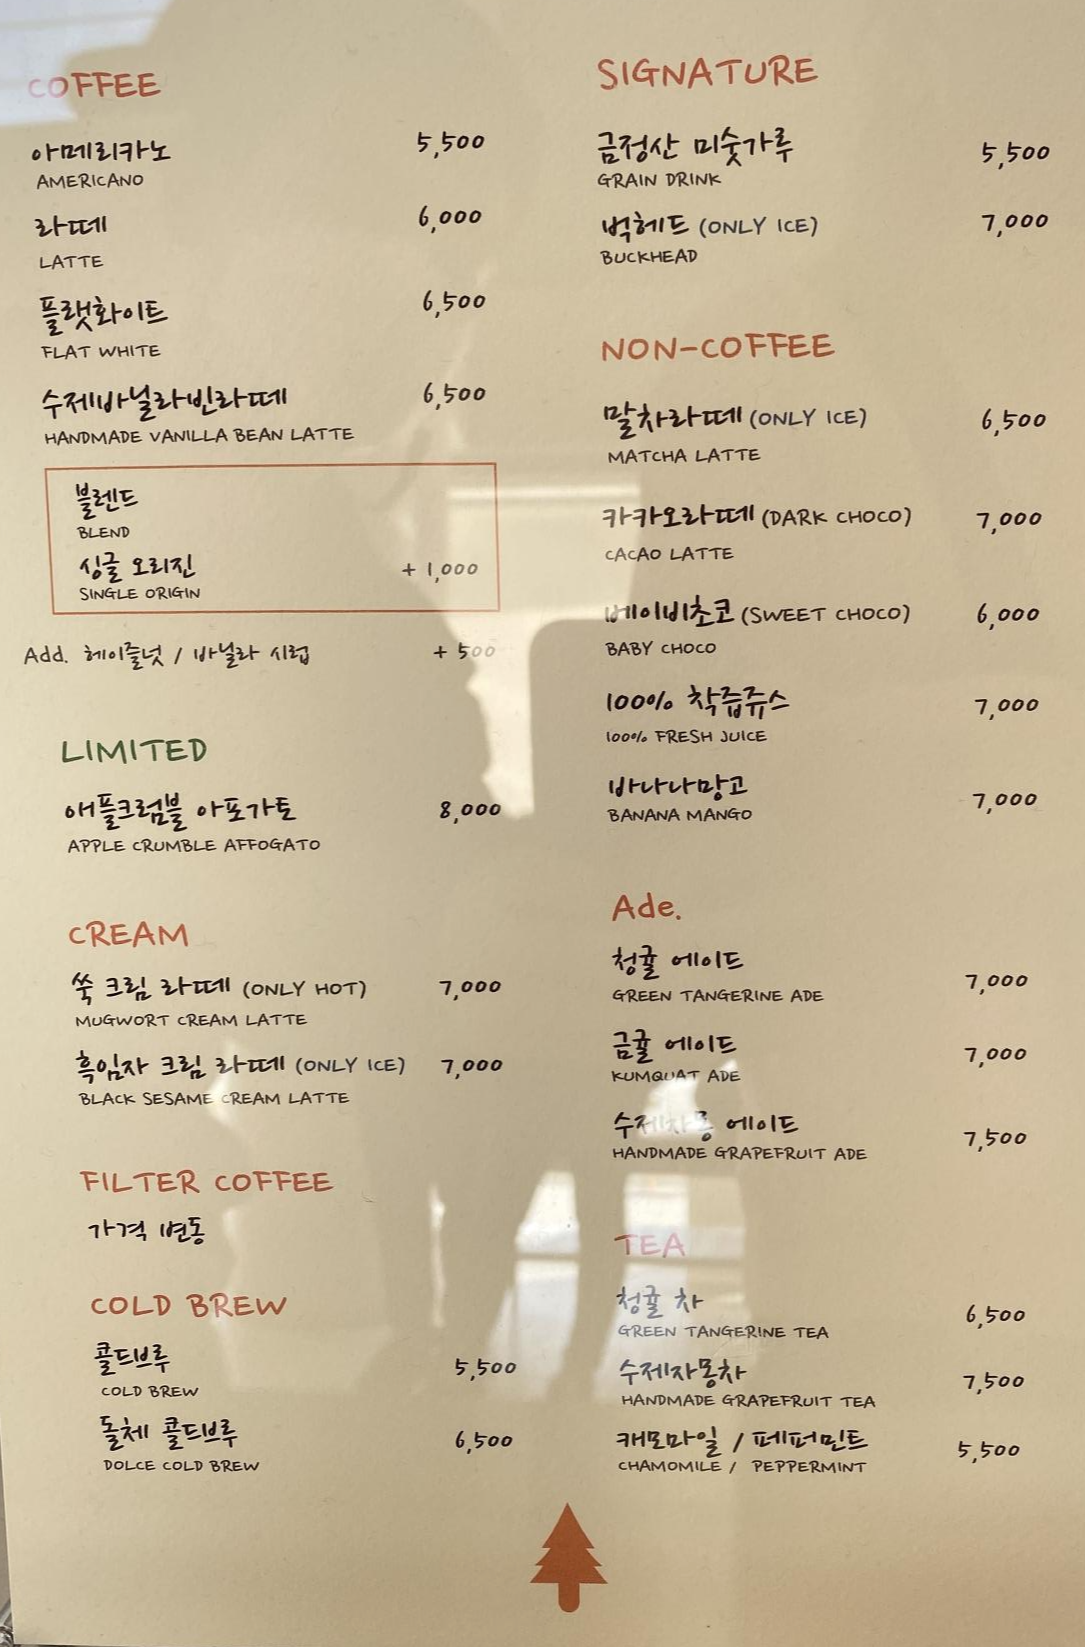 COFFEE
아메리카노 5,500
AMERICANO
라떼 6,000
LATTE
플랫화이트 6,500
FLAT WHITE
수제바닐라빈라떼 6,500
HANDMADE VANILLA BEAN LATTE
블렌드
BLEND
싱글 오리진 + 1,000
SINGLE ORIGIN
Add. 헤이즐넛 / 바닐라 시럽 + 500
LIMITED
애플크럼블 아포가토 8,000
APPLE CRUMBLE AFFOGATO
CREAM
쑥 크림 라떼 (ONLY HOT) 7,000
MUGWORT CREAM LATTE
흑임자 크림 라떼 (ONLY ICE) 7,000
BLACK SESAME CREAM LATTE
FILTER COFFEE
가격 변동
COLD BREW
콜드브루 5,500
COLD BREW
돌체 콜드브루 6,500
DOLCE COLD BREW
SIGNATURE
금정산 미숫가루 5,500
GRAIN DRINK
벅헤드 (ONLY ICE) 7,000
BUCKHEAD
NON-COFFEE
말차라떼 (ONLY ICE) 6,500
MATCHA LATTE
카카오라떼 (DARK CHOCO) 7,000
CACAO LATTE
베이비초코 (SWEET CHOCO) 6,000
BABY CHOCO
100% 착즙쥬스 7,000
100% FRESH JUICE
바나나망고 7,000
BANANA MANGO
Ade.
청귤 에이드 7,000
GREEN TANGERINE ADE
금귤 에이드 7,000
KUMQUAT ADE
수제자몽 에이드 7,500
HANDMADE GRAPEFRUIT ADE
TEA
청귤 차 6,500
GREEN TANGERINE TEA
수제자몽차 7,500
HANDMADE GRAPEFRUIT TEA
캐모마일 / 페퍼민트 5,500
CHAMOMILE / PEPPERMINT